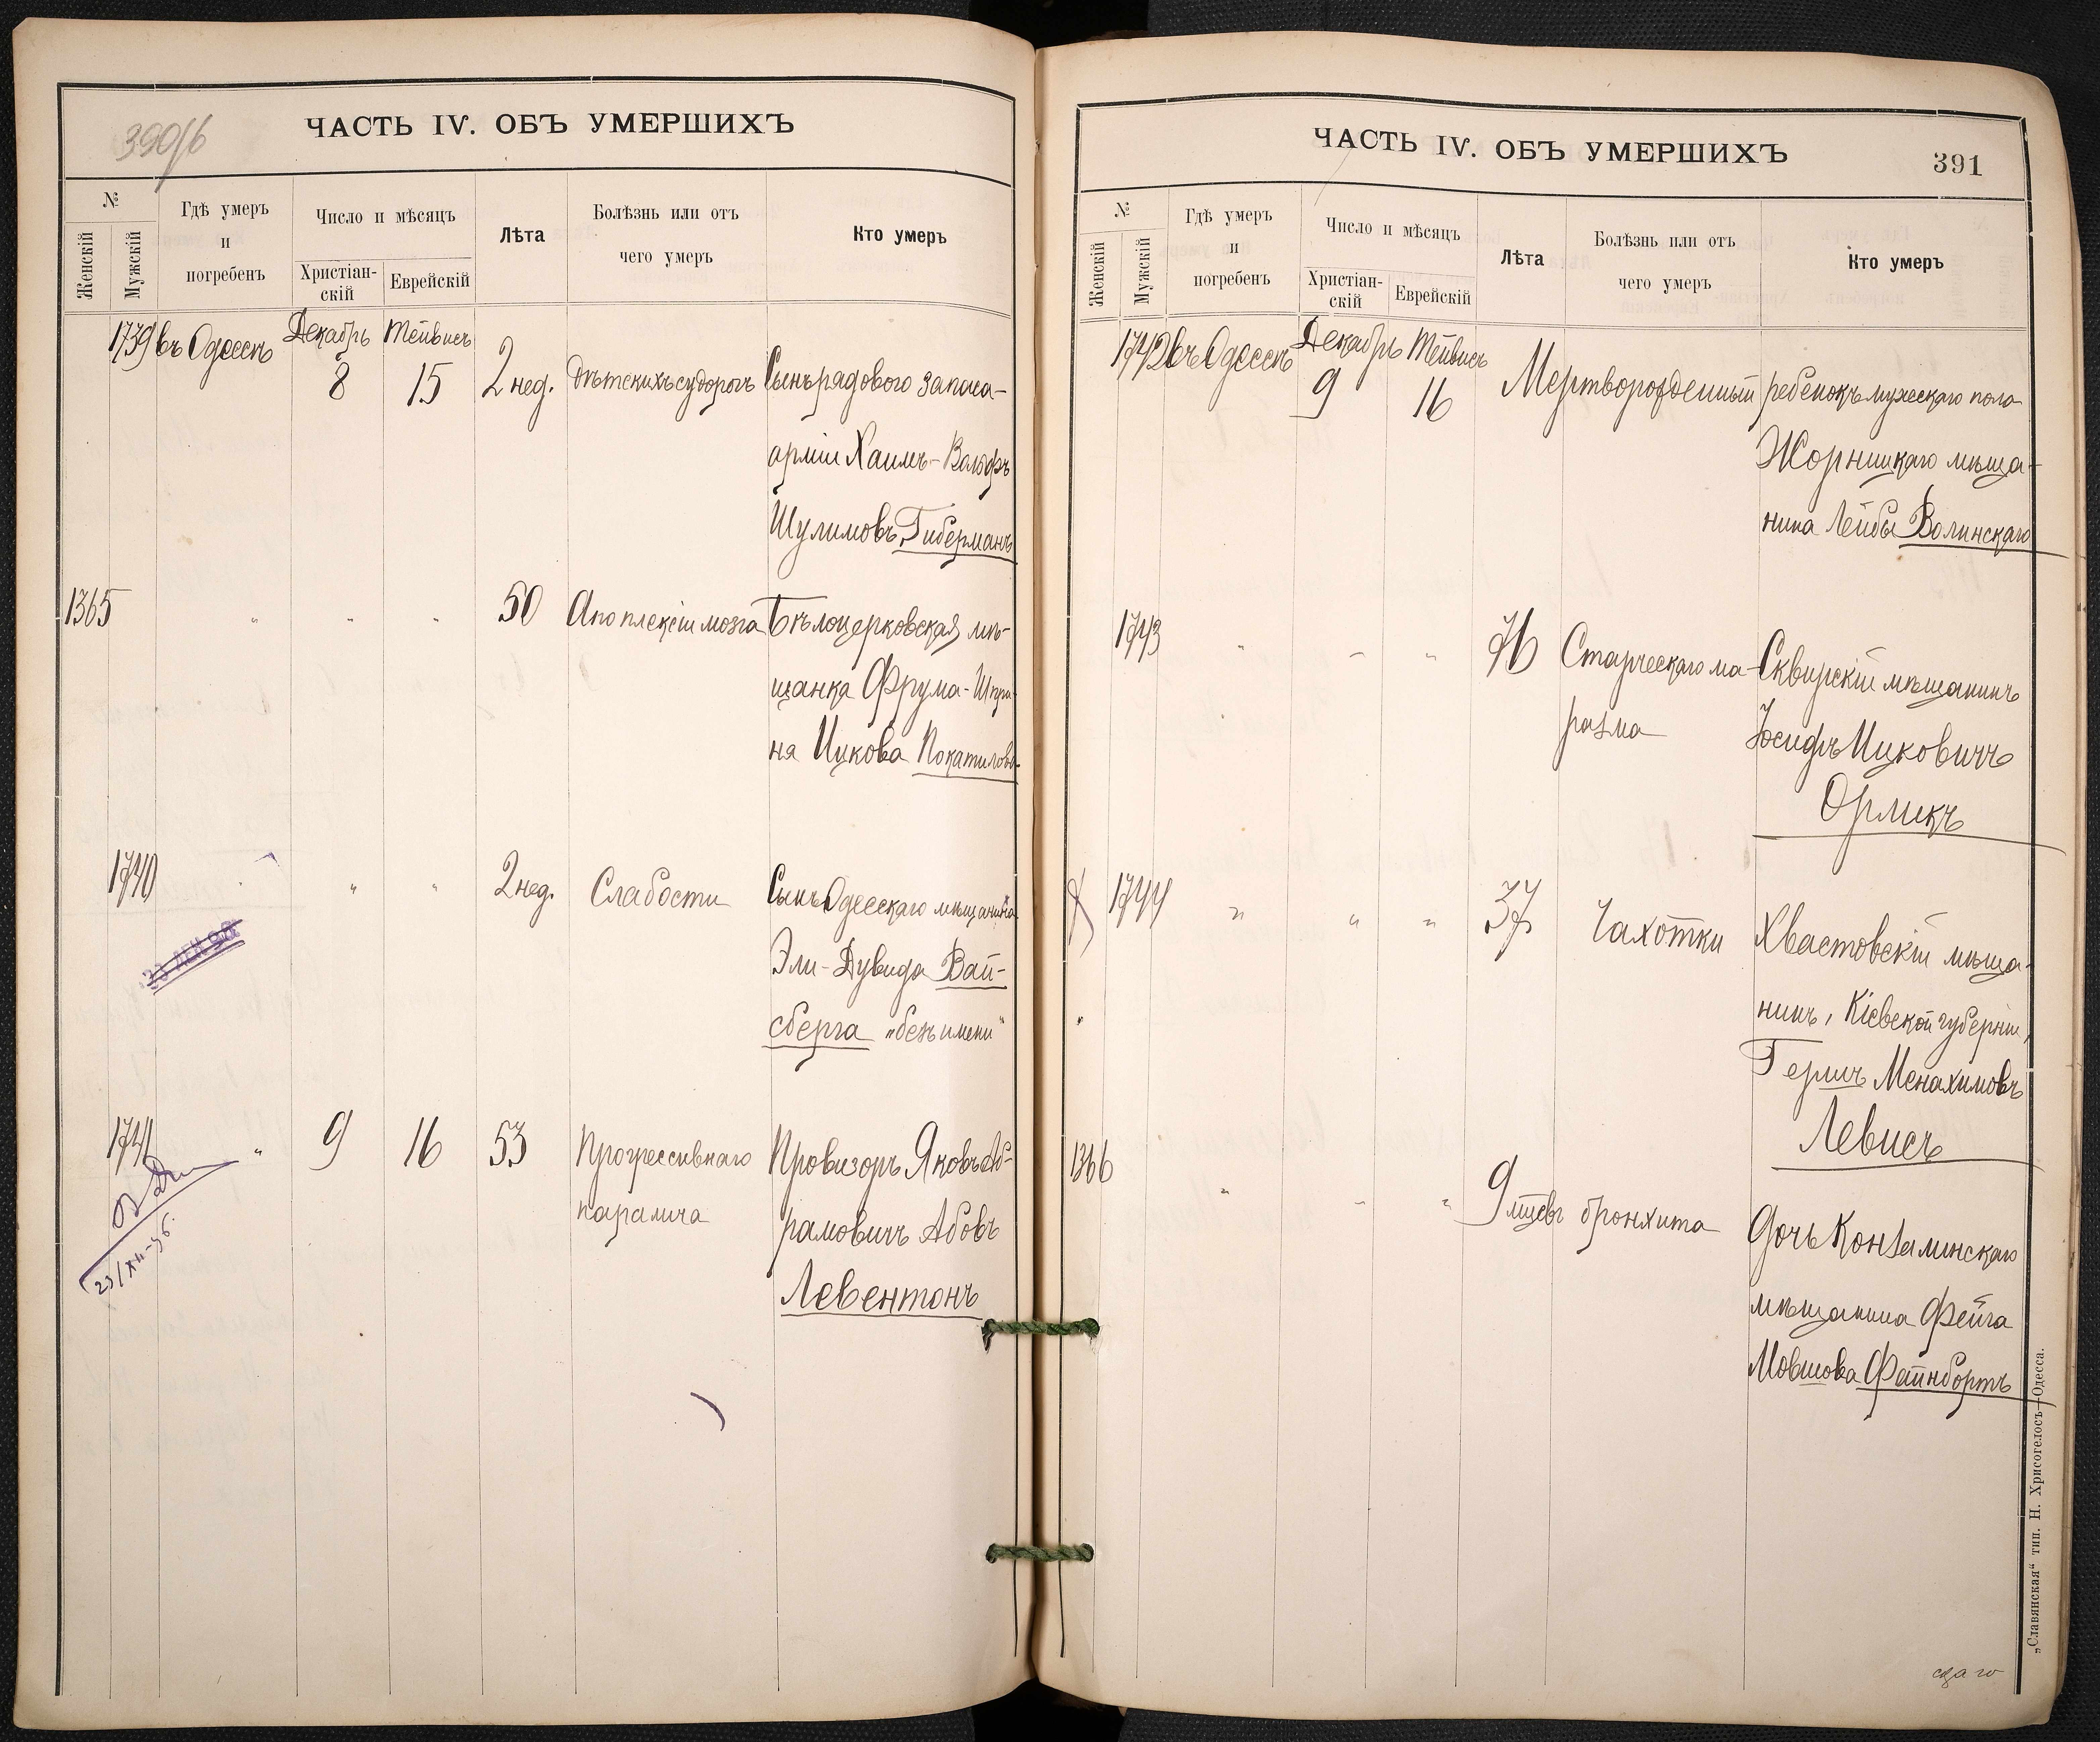 390/б
ЧАСТЬ IV. ОБЪ УМЕРШИХЪ
№
Женскій
Мужскій
Гдѣ умеръ
и
погребенъ
Число и мѣсяцъ
Христіан-
скій
Еврейскій
Лѣта
Болѣзнь или отъ
чего умеръ
Кто умеръ
1739 въ Одессѣ Декабрь Тейвисъ
8 15 2 нед. Дѣтскихъ судорогъ Сынъ рядового запаса
арміи Хаимъ-Вольфъ
Шулимовъ Гиберманъ
1365 " " " 50 Апоплексіи мозга Бѣлоцерковская мѣ-
щанка Фрума-
на Ицкова Покатилова
1740 " " " 2 нед. Слабости Сынъ Одесскаго мѣщанина
Эли-Дувида Вай-
сберга „безъ имени"
1741 " 9 16 53 Прогрессивнаго Провизоръ Яковъ Аб-
паралича рамовичъ Абовъ
Левентонъ
ЧАСТЬ IV. ОБЪ УМЕРШИХЪ
391
№
Женскій
Мужскій
Гдѣ умеръ
и
погребенъ
Число и мѣсяцъ
Христіан-
скій
Еврейскій
Лѣта
Болѣзнь или отъ
чего умеръ
Кто умеръ
1742 въ Одессѣ Декабрь Тейвисъ
9 16 Мертворожденный ребенокъ мужескаго пола
Жорнищкаго мѣща-
нина Лейбы Волинскаго
1743 " " " 76 Старческаго ма- Сквирскій мѣщанинъ
разма Іосифъ Ицковичъ
Ормикъ
1744 " " " 37 Чахотки Хвастовскій мѣща-
нинъ, Кіевской губерніи,
Гершъ Менахимовъ
Левисъ
1366 " " " 9 мцевъ бронхита Дочь
мѣщанина Фейга
Мовшова Файнбортъ
„Славянская" тип. Н. Хрисогелосъ—Одесса.